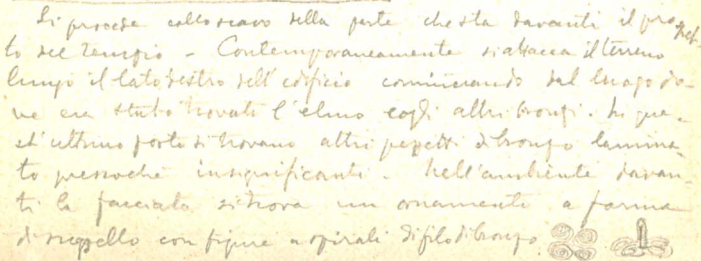 Si procede collo scavo della parte che sta davanti il prospet-
to del tempio - Contemporaneamente si attacca il terreno
lungo il lato destro dell'edificio cominciando dal luogo do-
ve era stato trovato l'elmo e gli altri bronzi. In que-
st'ultimo posto si trovano altri pezzetti di bronzo lamina-
to pressoché insignificanti. Nell'ambiente davan-
ti la facciata si trova un ornamento a forma
di suggello con figure a spirali di filo di bronzo